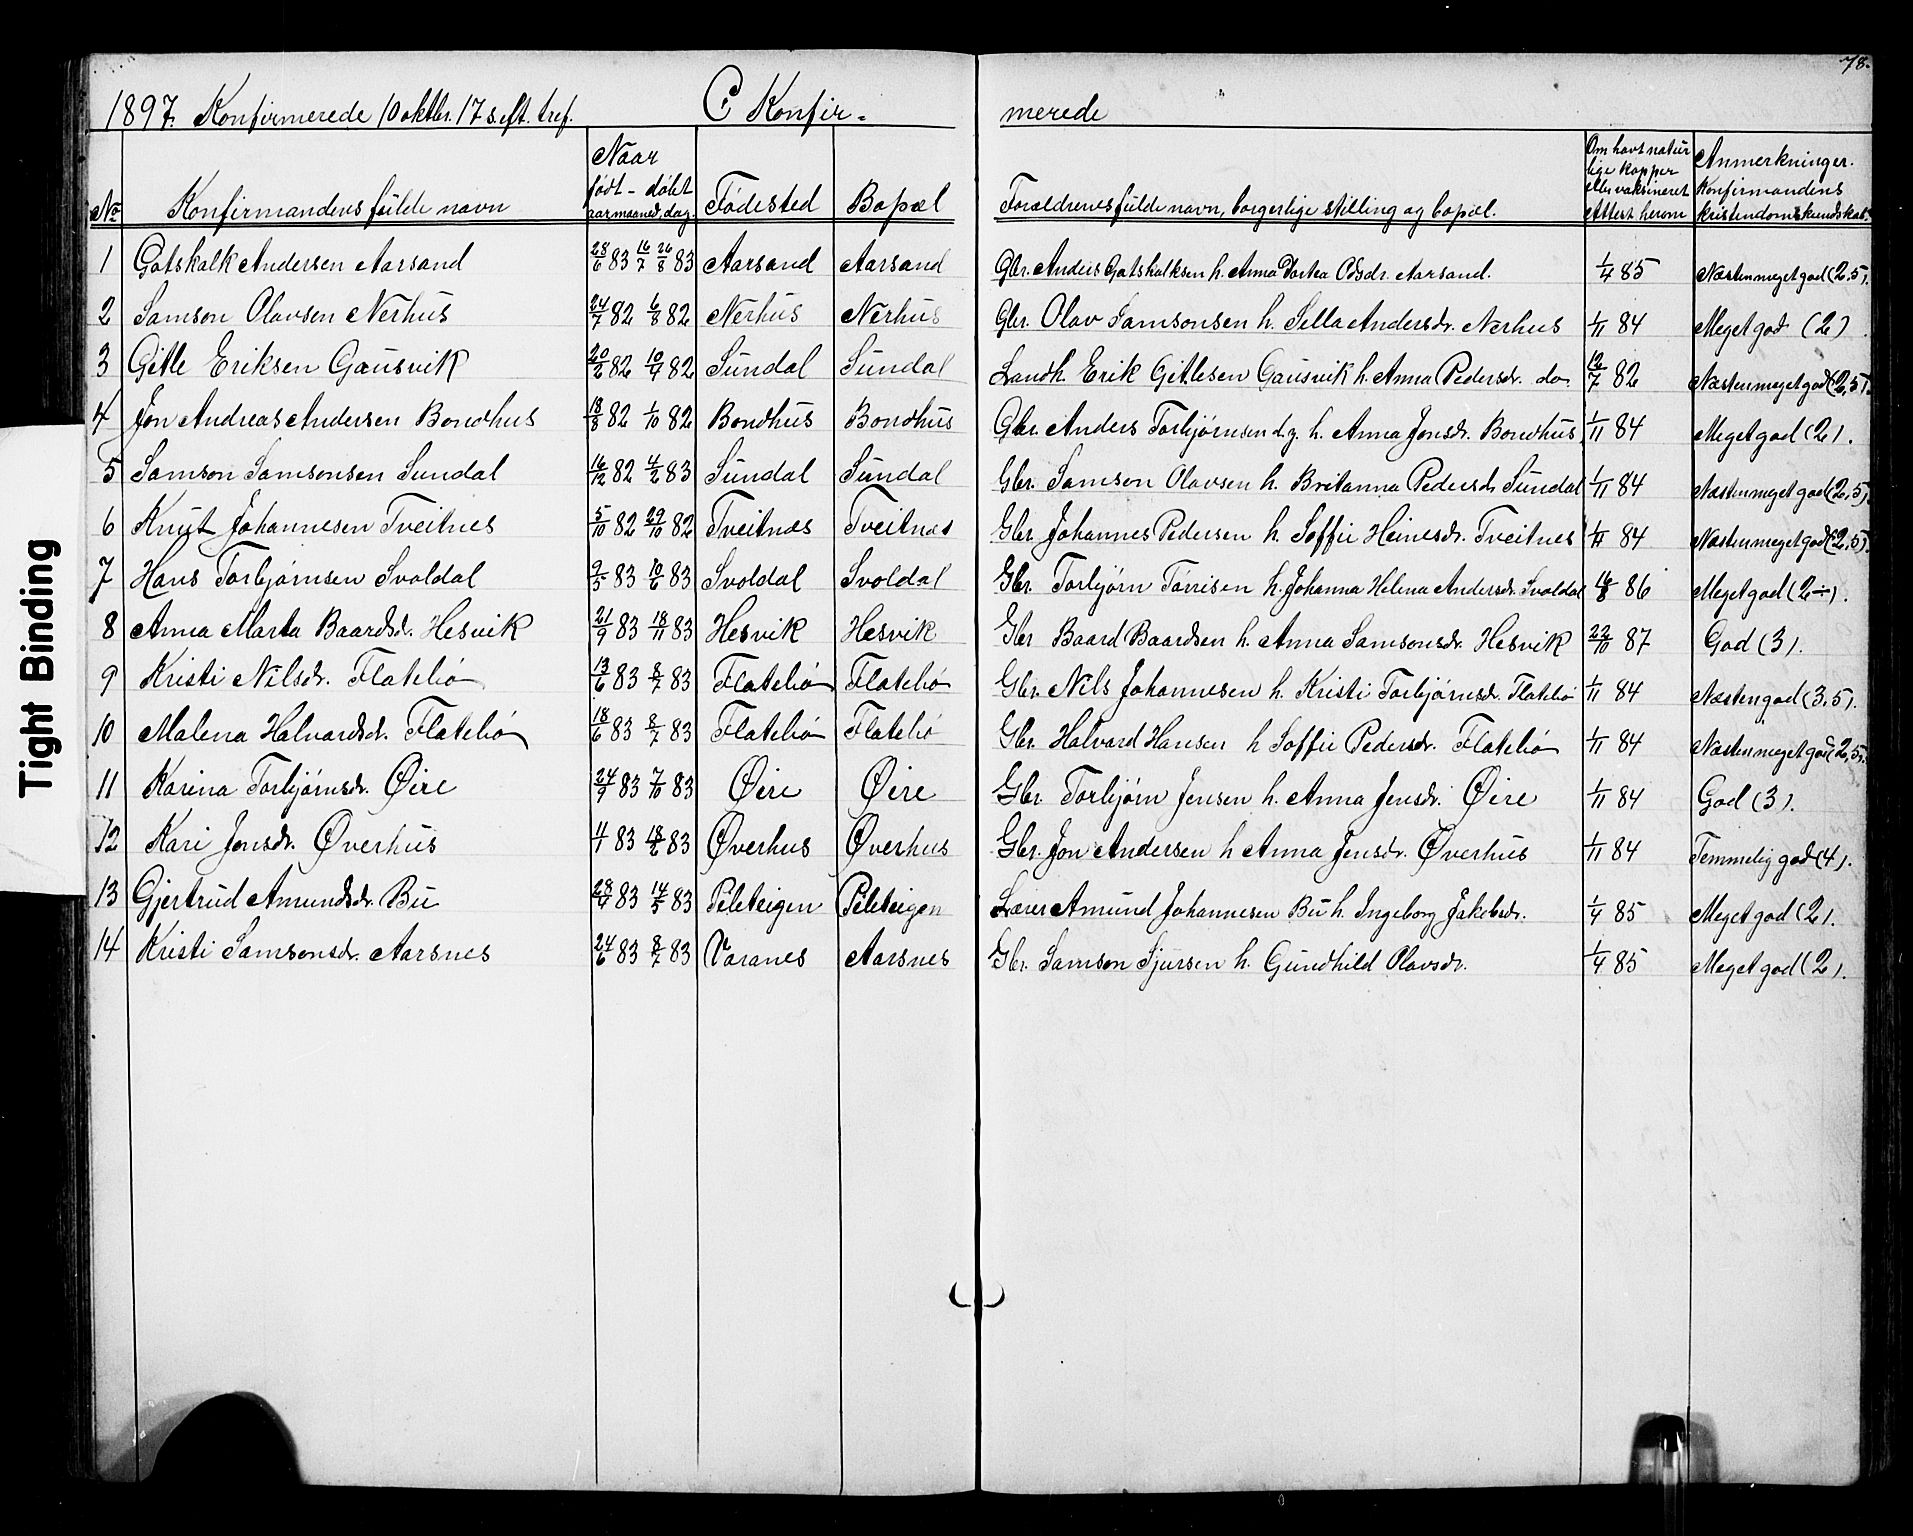 78.
1897. Konfirmerede 10 oktbr. 17 s. eft. tref. C Konfir- merede
No Konfirmandens fulde navn Naar født - døbt aar maaned, dag. Fødested Bopæl Forældrenes fulde navn, borgerlige stilling og bopæl. Om havt naturlige kopper eller vaksineret Attest herom Anmerkninger. Konfirmandens kristendomskundskab.
1 Gotskalk Andersen Aarsand 28/6 83 16/7 26/8 83 Aarsand Aarsand Gbr. Anders Gotskalksen h. Anna Dortea Odsdr. Aarsand. 1/4 85 Næsten meget god (2,5).
2 Samson Olavsen Nerhus 24/7 82 6/8 82 Nerhus Nerhus Gbr. Olav Samsonsen h. Sella Andersdr. Nerhus 1/11 84 Meget god (2).
3 Gitle Eriksen Gausvik 20/2 82 10/4 82 Sundal Sundal Landh. Erik Gitlesen Gausvik h. Anna Pedersdr. do. 12/7 82 Næsten meget god (2,5).
4 Jon Andreas Andersen Bondhus 18/8 82 1/10 82 Bondhus Bondhus Gbr. Anders Torbjørnsen d.y. h. Anna Jonsdr. Bondhus 1/11 84 Meget god (2).
5 Samson Samsonsen Sundal 16/12 82 4/2 83 Sundal Sundal Gbr. Samson Olavsen h. Britanna Pedersd. Sundal 1/11 84 Næsten meget god (2,5).
6 Knut Johannesen Tveitnes 5/10 82 29/10 82 Tveitnæs Tveitnæs Gbr. Johannes Pedersen h. Soffie Heinesdr. Tveitnes 1/11 84 Næsten meget god (2,5).
7 Hans Torbjørnsen Svoldal 9/5 83 10/6 83 Svoldal Svoldal Gbr. Torbjørn Tørrisen h. Johanna Helena Andersdr. Svoldal 16/8 86 Meget god (2÷).
8 Anna Marta Baardsdr. Hesvik 21/9 83 18/11 83 Hesvik Hesvik Gbr Baard Baardsen h. Anna Samsonsdr. Hesvik 22/10 87 God (3).
9 Kristi Nilsdr. Flatebø 13/6 83 8/7 83 Flatebø Flatebø Gbr. Nils Johannesen h. Kristi Torbjørnsdr. Flatebø 1/11 84 Næsten god (3,5).
10 Malena Halvardsdr. Flatebø 18/6 83 8/7 83 Flatebø Flatebø Gbr. Halvard Hansen h Soffie Pedersdr. Flatebø 1/11 84 Næsten meget god (2,5).
11 Karina Torbjørnsdr. Øire 24/9 83 7/10 83 Øire Øire Gbr. Torbjørn Jensen h. Anna Jensdr. Øire 1/11 84 God (3).
12 Kari Jonsdr. Øverhus 4/1 83 18/2 83 Øverhus Øverhus Gbr. Jon Andersen h Anna Jensdr. Øverhus 1/11 84 Temmelig god (4).
13 Gjertrud Amundsdr. Bu 28/4 83 14/5 83 Pileteigen Pileteigen Lærer Amund Johannesen Bu h. Ingeborg Jakobsdr. 1/4 85 Meget god (2).
14 Kristi Samsonsdr. Aarsnes 24/6 83 8/7 83 Varanes Aarsnes Gbr. Samson Sjursen h. Gundhild Olavsdr. 1/4 85 Meget god (2).
Tight Binding